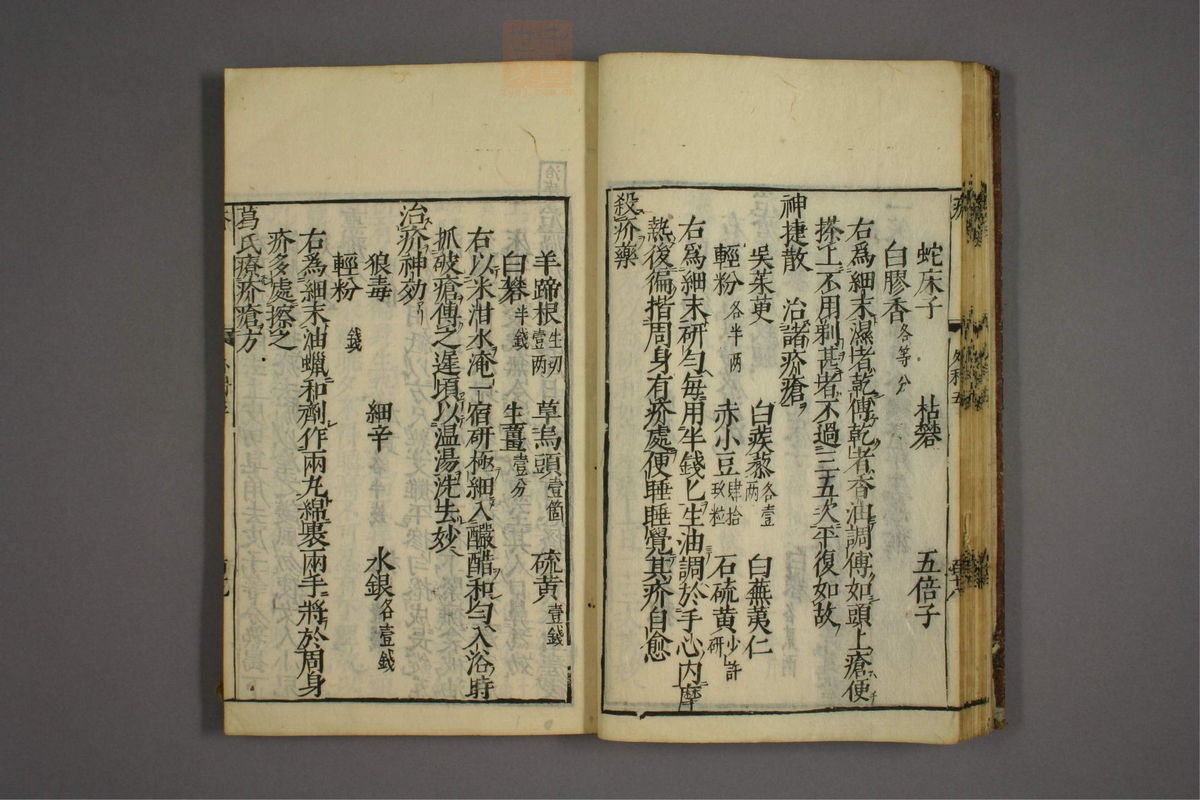 蛇床子　枯礬　五倍子
白膠香各等分
右爲細末濕者乾傅乾者香油調傅如頭上瘡便
搽上不用剃甚者不過三五次平復如故
神捷散　治諸疥瘡
吳茱萸　白蒺藜各壹兩　白蕪荑仁
輕粉各半兩　赤小豆肆拾玖粒　石硫黄少許研
右爲細末研匀每用半錢匕生油調於手心内摩
熱後徧揩周身有疥處便睡睡覺其疥自愈
殺疥藥
羊蹄根生刃壹兩　草烏頭壹箇　硫黄壹錢
白礬半錢　生薑壹分
右以米泔水淹一宿研極細入釅醋和匀入浴時
抓破瘡傅之遲頃以温湯洗去妙
治疥神効
狼毒　細辛　水銀各壹錢
輕粉錢
右爲細末油蝋和劑作兩丸綿裹兩手將於周身
疥多處擦之
葛氏療疥瘡方